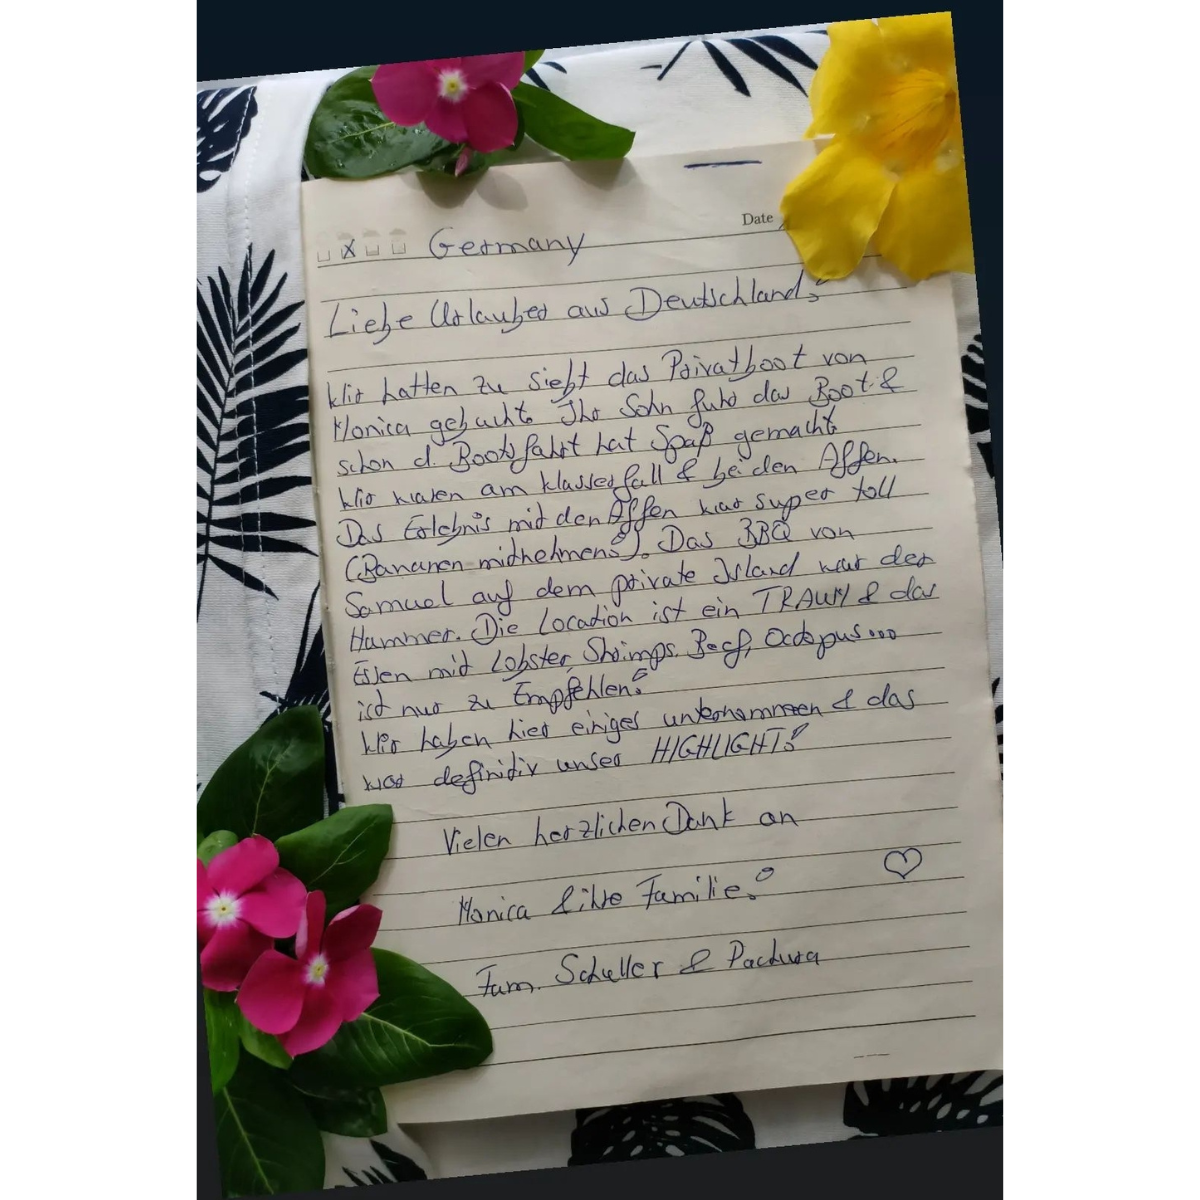 Date
Germany
Liebe Urlauber aus Deutschland!
Wir hatten zu siebt das Privatboot von
Monica gebucht. Ihr Sohn fuhr das Boot &
schon d. Bootsfahrt hat Spaß gemacht.
Wir waren am Wasserfall & bei den Affen.
Das Erlebnis mit den Affen war super toll
(Bananen mitnehmen!). Das BBQ von
Samuel auf dem private Island war der
Hammer. Die Location ist ein TRAUM & das
Essen mit Lobster, Shrimps, Beef, Octopus...
ist nur zu Empfehlen!
Wir haben hier einiges unternommen & das
war definitiv unser HIGHLIGHT!
Vielen herzlichen Dank an
Monica & ihre Familie!
Fam. Schuller & Pachura